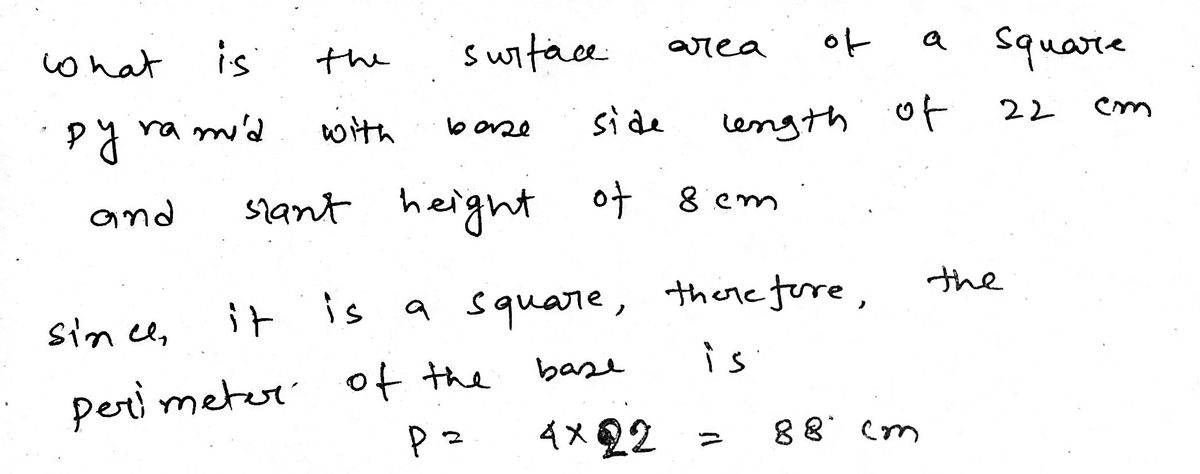 what is the surface area of a square
pyramid with base side length of 22 cm
and slant height of 8 cm
since, it is a square, therefore, the
perimeter of the base is
P = 4 × 22 = 88 cm